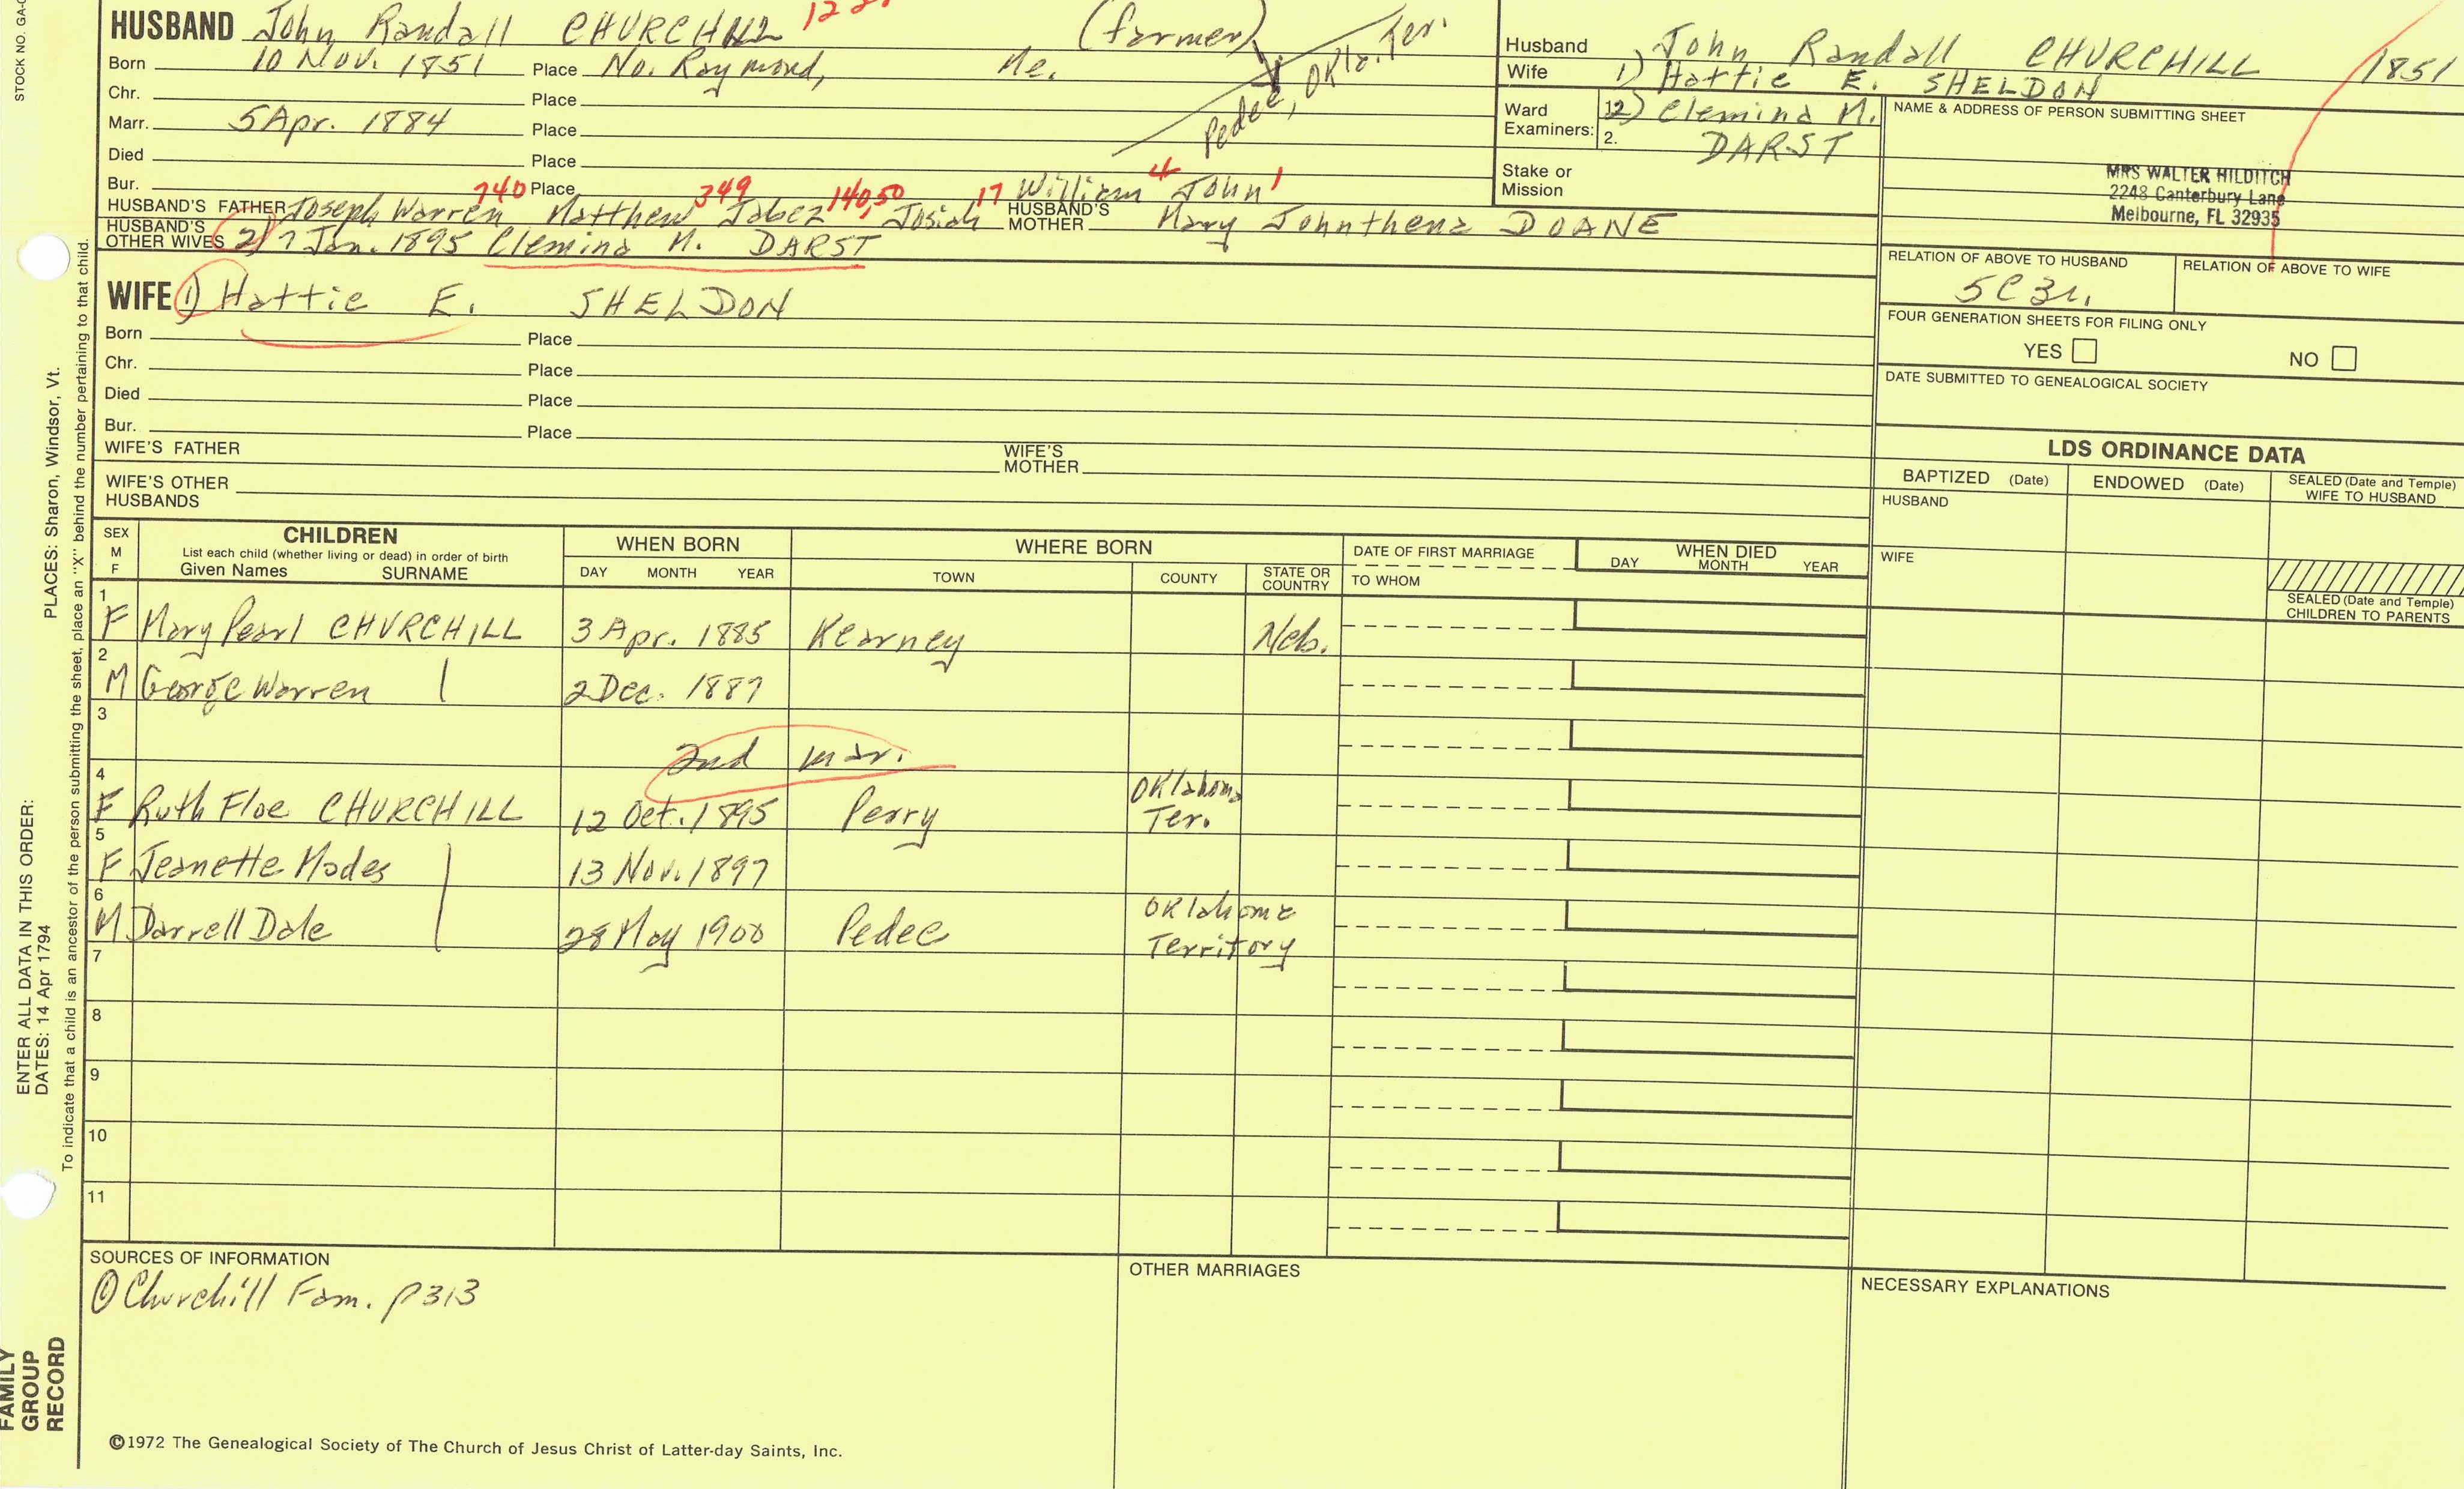 STOCK NO. GA-
HUSBAND John Randall CHURCHILL (farmer)
Pedee, Okla. Ter.
Born 10 Nov. 1851 Place No. Raymond, Me.
Chr. Place
Marr. 5 Apr. 1884 Place
Died Place
Bur. Place
HUSBAND'S FATHER Joseph Warren 740 Matthew 349 Jabez 140,50 Josiah 17 William 4 John 1
HUSBAND'S MOTHER Mary Johnthena DOANE
HUSBAND'S OTHER WIVES 2) 7 Jan. 1895 Clemina M. DARST
WIFE 1) Hattie E. SHELDON
Born Place
Chr. Place
Died Place
Bur. Place
WIFE'S FATHER WIFE'S MOTHER
WIFE'S OTHER HUSBANDS
Husband John Randall CHURCHILL 1851
Wife 1) Hattie E. SHELDON
Ward Examiners: 1. 2) Clemina M.
2. DARST
Stake or Mission
NAME & ADDRESS OF PERSON SUBMITTING SHEET
MRS WALTER HILDITCH
2248 Canterbury Lane
Melbourne, FL 32935
RELATION OF ABOVE TO HUSBAND RELATION OF ABOVE TO WIFE
5C3r.
FOUR GENERATION SHEETS FOR FILING ONLY
YES NO
DATE SUBMITTED TO GENEALOGICAL SOCIETY
LDS ORDINANCE DATA
BAPTIZED (Date) ENDOWED (Date) SEALED (Date and Temple) WIFE TO HUSBAND
HUSBAND
WIFE
SEALED (Date and Temple) CHILDREN TO PARENTS
SEX M F
CHILDREN
List each child (whether living or dead) in order of birth
Given Names SURNAME
WHEN BORN
DAY MONTH YEAR
WHERE BORN
TOWN COUNTY STATE OR COUNTRY
DATE OF FIRST MARRIAGE
TO WHOM
WHEN DIED
DAY MONTH YEAR
1 F Mary Pearl CHURCHILL 3 Apr. 1885 Kearney Neb.
2 M George Warren 2 Dec. 1887
3 2nd mar.
4 F Ruth Floe CHURCHILL 12 Oct. 1895 Perry Oklahoma Ter.
5 F Jeanette Modes 13 Nov. 1897
6 M Darrell Dale 28 May 1900 Pedee Oklahoma Territory
7
8
9
10
11
SOURCES OF INFORMATION
① Churchill Fam. p313
OTHER MARRIAGES
NECESSARY EXPLANATIONS
©1972 The Genealogical Society of The Church of Jesus Christ of Latter-day Saints, Inc.
PLACES: Sharon, Windsor, Vt.
ENTER ALL DATA IN THIS ORDER:
DATES: 14 Apr 1794
To indicate that a child is an ancestor of the person submitting the sheet, place an "X" behind the number pertaining to that child.
FAMILY
GROUP
RECORD